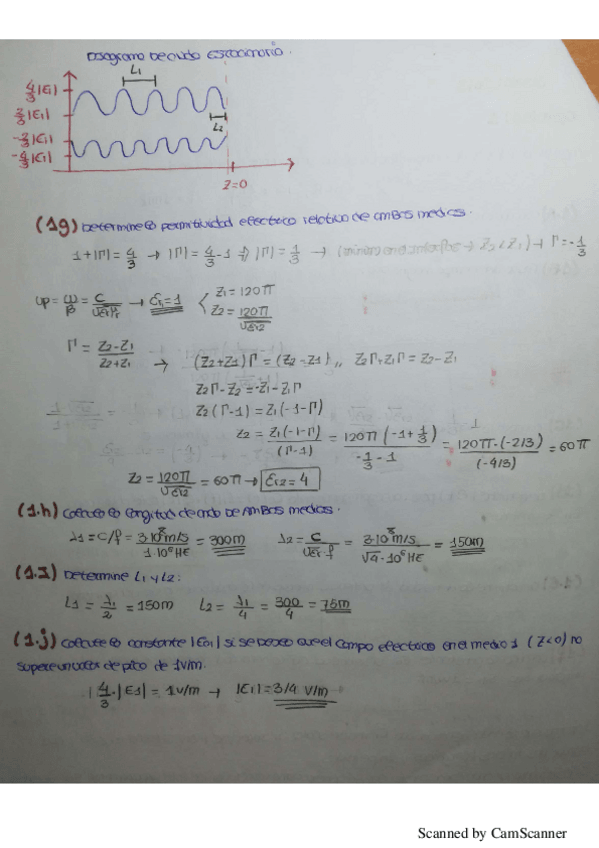 Diagrama De onda Estacionaria.
L1
4/3|Ei|
2/3|Ei|
-2/3|Ei|
-4/3|Ei|
L2
Z=0
(1g) Determine la permitividad eléctrica relativa de ambos medios.
1+|Γ| = 4/3 → |Γ| = 4/3 - 1 ⇒ |Γ| = 1/3 → (mínimo en la interfase → Z2<Z1) → Γ = -1/3
up = ω/β = c/√εrμr → εr1 = 1 { Z1 = 120π
Z2 = 120π/√εr2
Γ = Z2-Z1/Z2+Z1 → (Z2+Z1)Γ = (Z2-Z1) ,, Z2Γ+Z1Γ = Z2-Z1
Z2Γ-Z2 = -Z1-Z1Γ
Z2(Γ-1) = Z1(-1-Γ)
Z2 = Z1(-1-Γ)/(Γ-1) = 120π(-1+1/3)/-1/3-1 = 120π·(-2/3)/(-4/3) = 60π
Z2 = 120π/√εr2 = 60π → εr2 = 4
(1.h) Calcule la longitud de onda de ambos medios.
λ1 = c/f = 3·10^8 m/s/1·10^6 Hz = 300m λ2 = c/√εr·f = 3·10^8 m/s/√4·10^6 Hz = 150m
(1.I) Determine L1 y L2:
L1 = λ1/2 = 150m L2 = λ1/4 = 300/4 = 75m
(1.j) Calcule la constante |E01| si se desea que el campo eléctrico en el medio 1 (Z<0) no
supere un valor de pico de 1v/m.
|4/3·|E1| = 1v/m → |Ei| = 3/4 V/m
Scanned by CamScanner